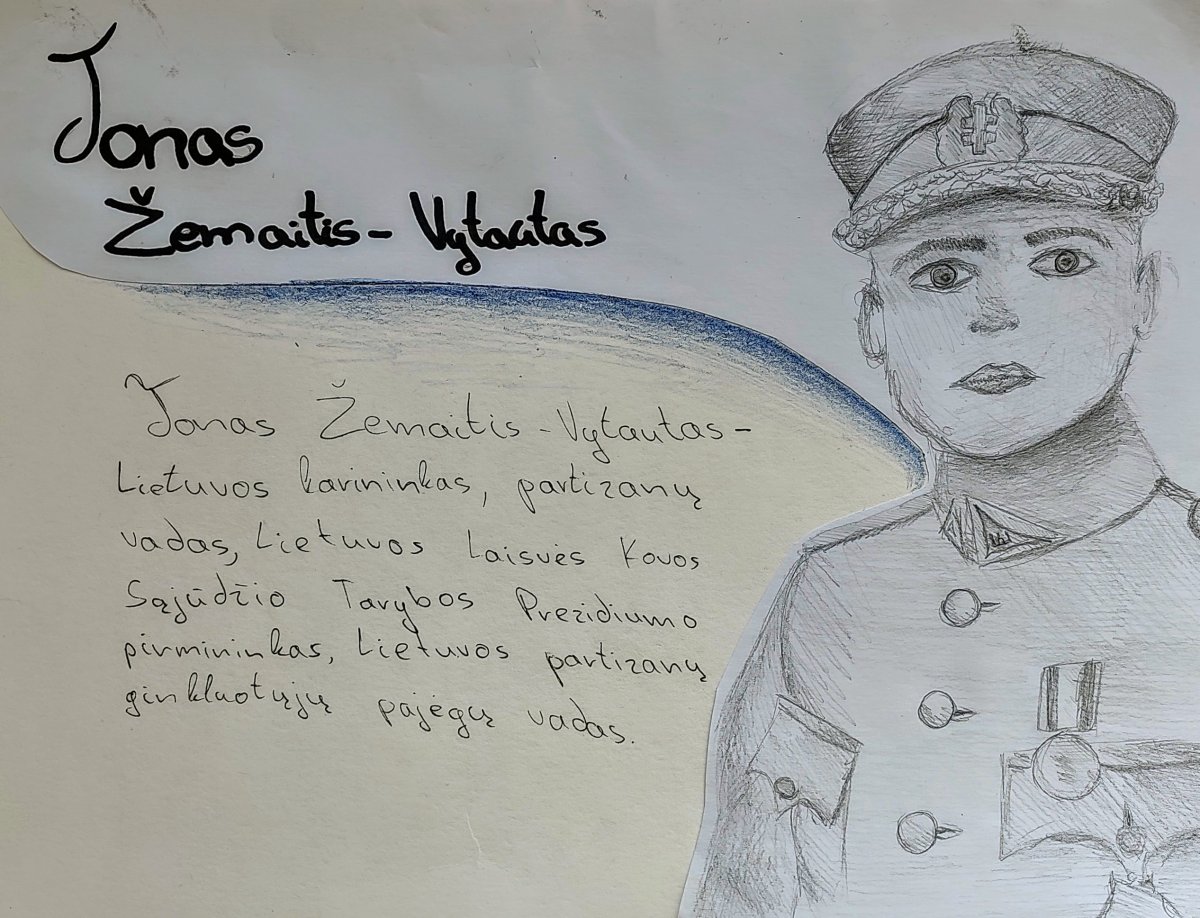 Jonas
Žemaitis - Vytautas
Jonas Žemaitis - Vytautas -
Lietuvos karininkas, partizanų
vadas, Lietuvos Laisvės Kovos
Sąjūdžio Tarybos Prezidiumo
pirmininkas, Lietuvos partizanų
ginkluotųjų pajėgų vadas.